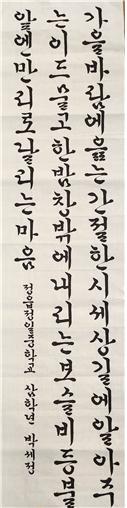 가을바람에읊는간절한시세상길에알아주
는이드물고한밤창밖에내리는보슬비등불
앞엔만리로날리는마음
정읍정일중학교 삼학년